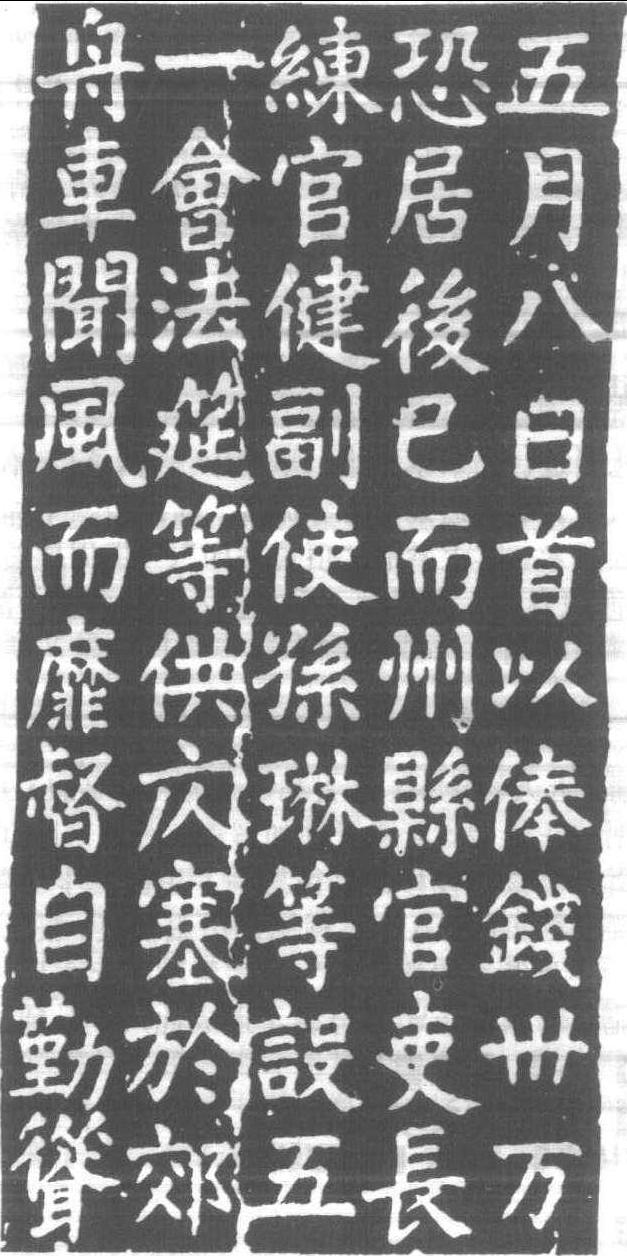 五月八日首以俸錢卅万
恐居後已而州縣官吏長
練官健副使孫琳等設五
一會法筵等供仄塞於郊
舟車聞風而靡督自勤聳